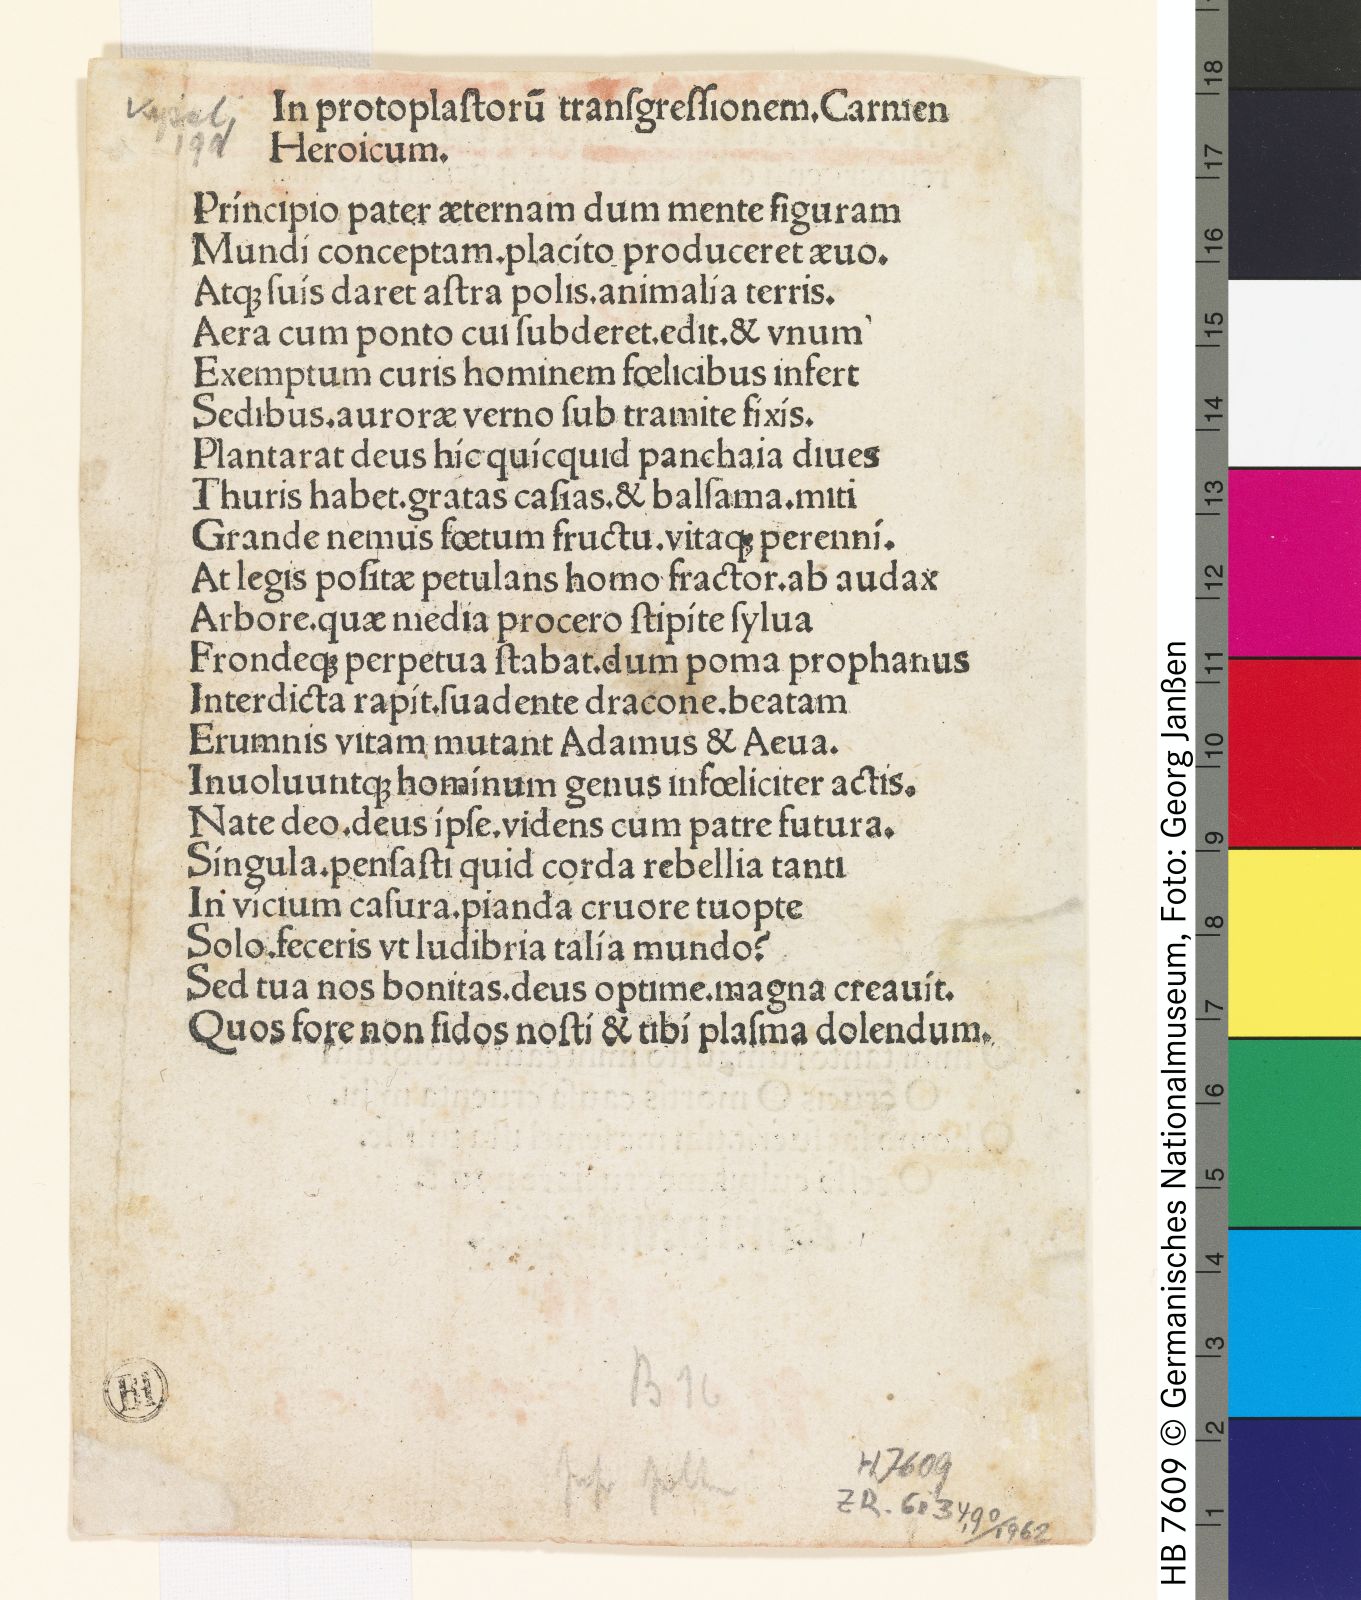 In protoplaſtorū tranſgreſſionem.Carmen
Heroicum.
Principio pater æternam dum mente figuram
Mundi conceptam.placito produceret æuo.
Atqꝫ ſuis daret aſtra polis.animalia terris.
Aera cum ponto cui ſubderet.edit.& vnum
Exemptum curis hominem fœlicibus infert
Sedibus.auroræ verno ſub tramite fixis.
Plantarat deus hic quicquid panchaia diues
Thuris habet.gratas caſias.& balſama.miti
Grande nemus fœtum fructu.vitaqꝫ perenni.
At legis poſitæ petulans homo fractor.ab audax
Arbore.quæ media procero ſtipite ſylua
Frondeqꝫ perpetua ſtabat.dum poma prophanus
Interdicta rapit.ſuadente dracone.beatam
Erumnis vitam mutant Adamus & Aeua.
Inuoluuntqꝫ hominum genus infœliciter actis.
Nate deo.deus ipſe.videns cum patre futura.
Singula.penſaſti quid corda rebellia tanti
In vicium caſura.pianda cruore tuopte
Solo.feceris vt ludibria talia mundo?
Sed tua nos bonitas.deus optime.magna creauit.
Quos fore non fidos noſti & tibi plaſma dolendum.
B 16
H7609
ZR. 6834,90/1962
HB 7609 © Germanisches Nationalmuseum, Foto: Georg Janßen
18
17
16
15
14
13
12
11
10
9
8
7
6
5
4
3
2
1